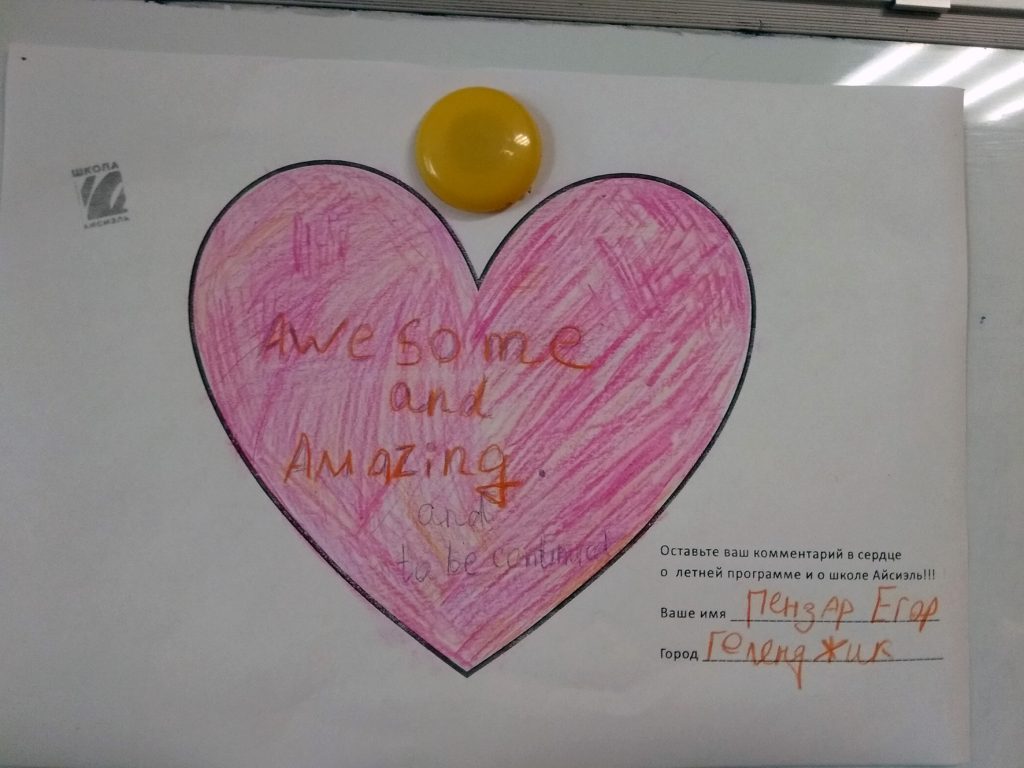 ШКОЛА
АЙСИЭЛЬ
Awesome
and
Amazing.
and
to be continued
Оставьте ваш комментарий в сердце
о летней программе и о школе Айсиэль!!!
Ваше имя Пензар Егор
Город Геленджик